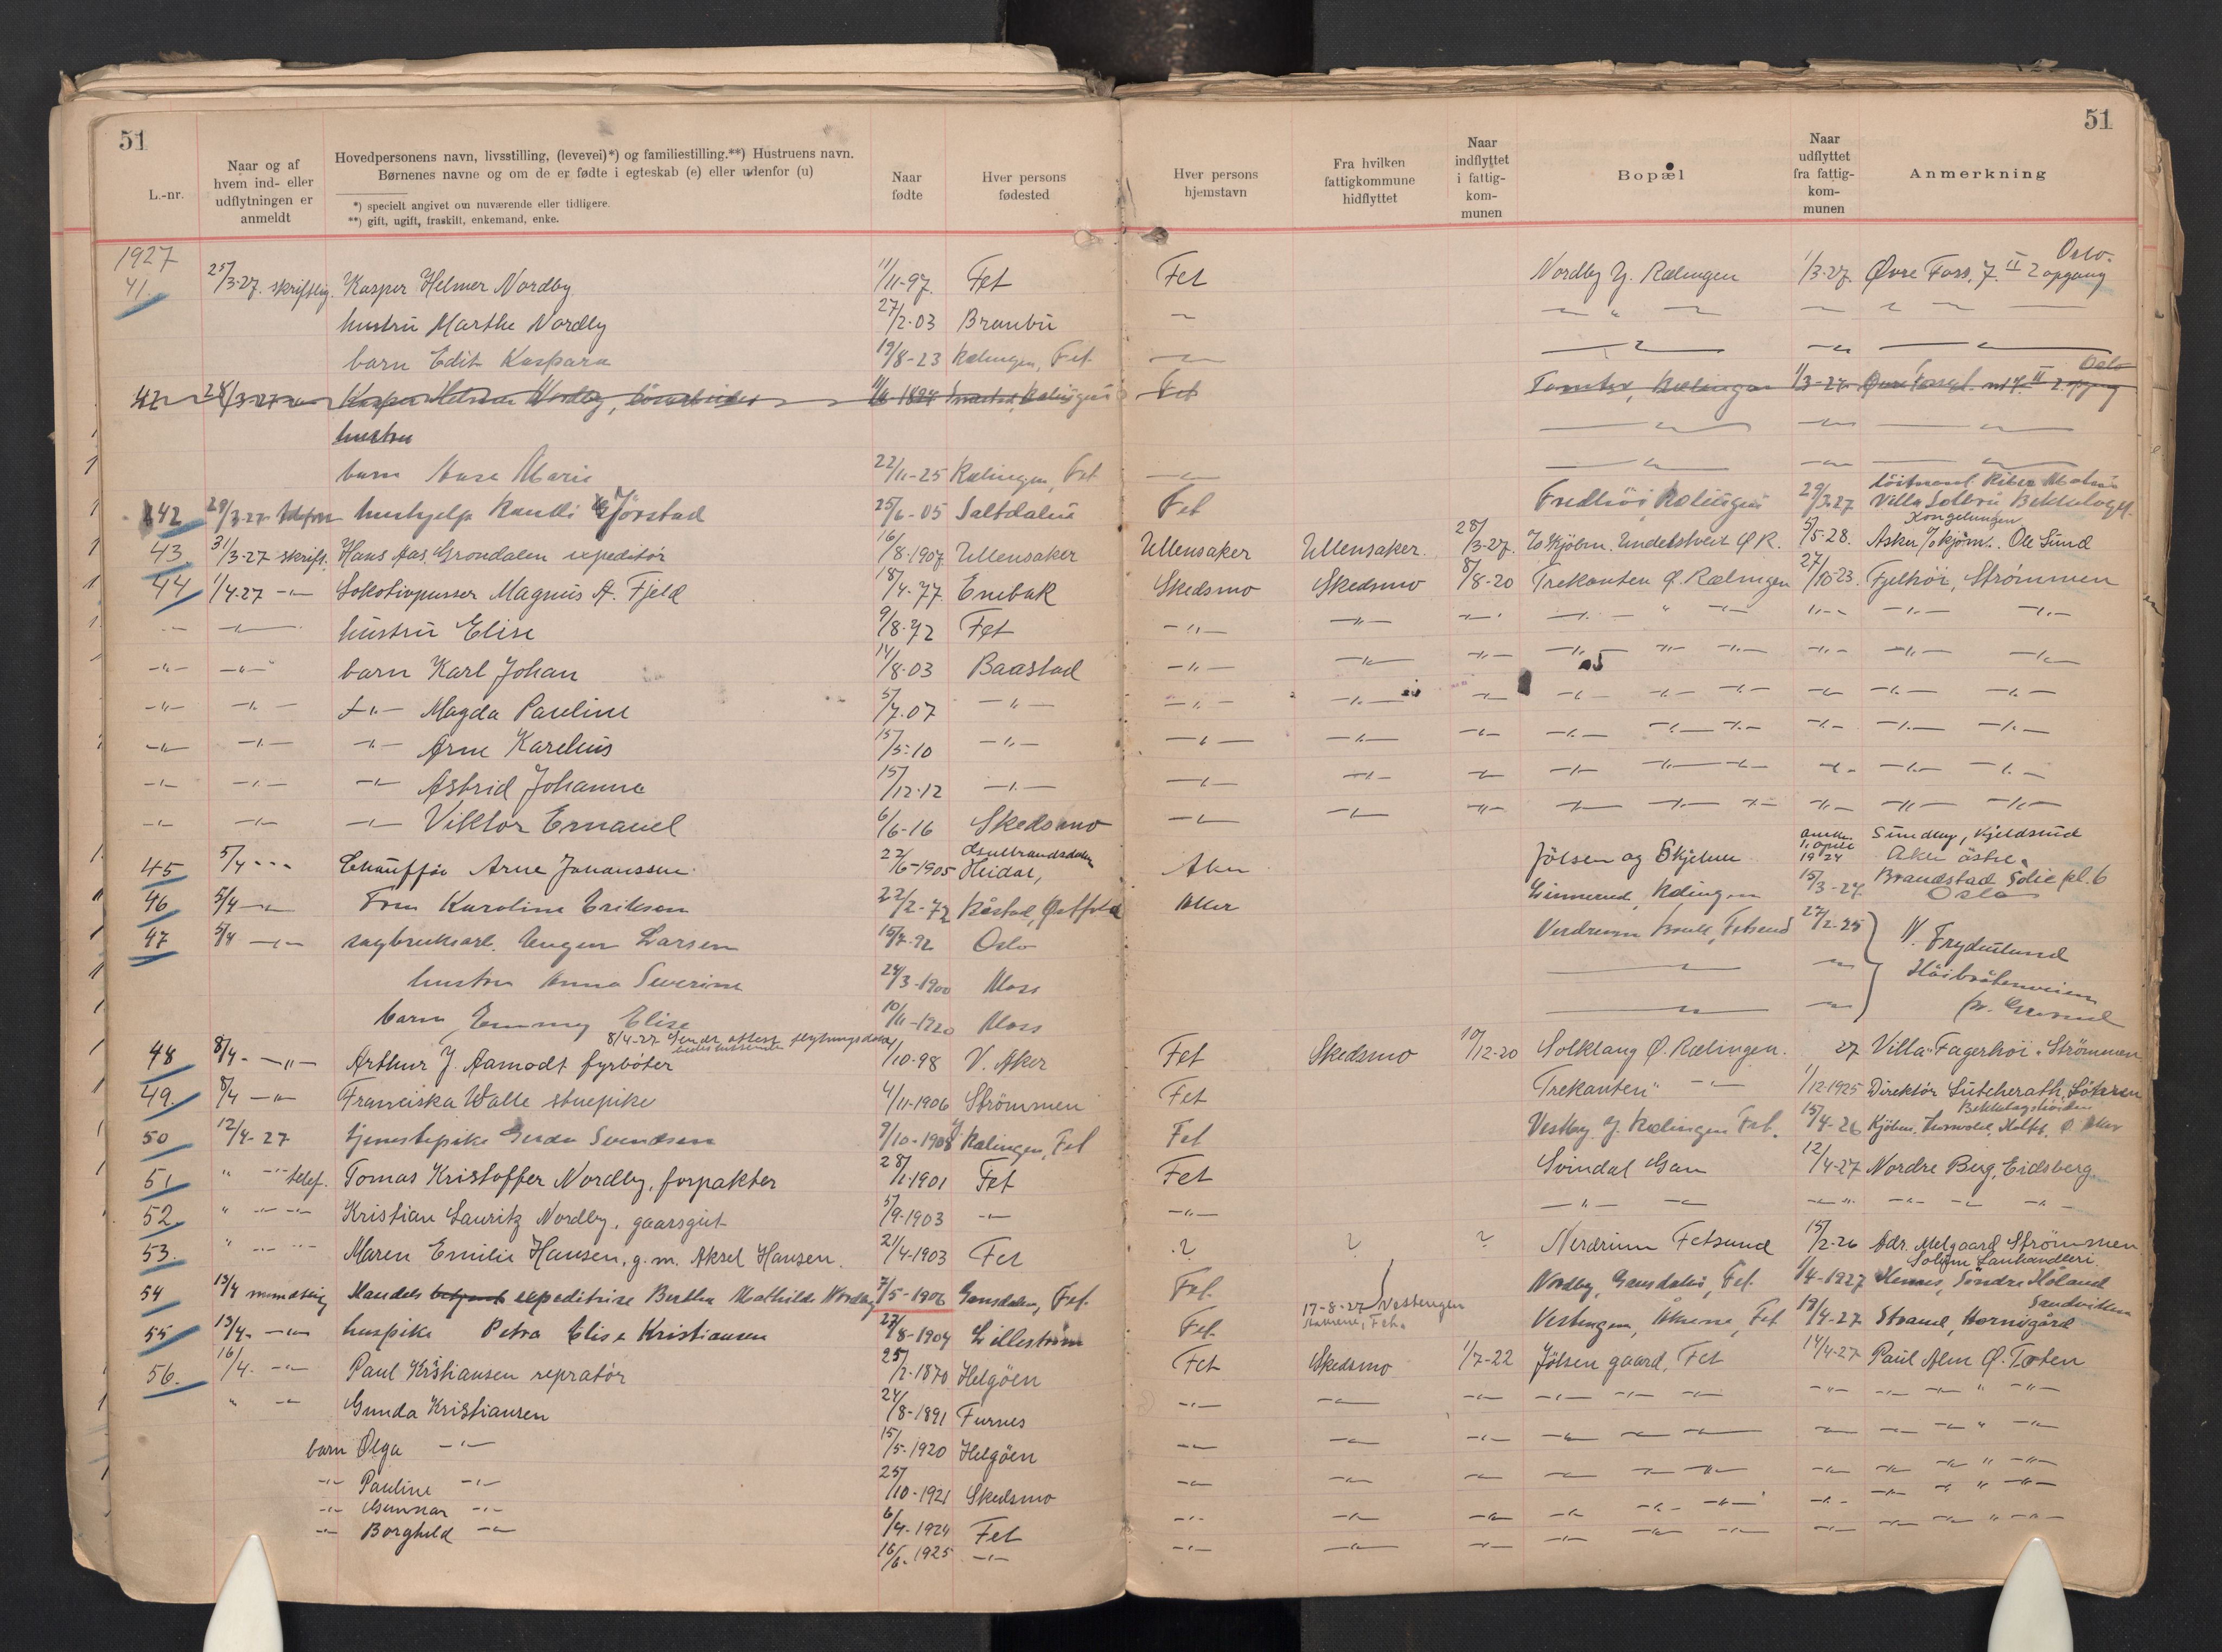 51
51
L.-nr.
Naar og af hvem ind- eller udflytningen er anmeldt
Hovedpersonens navn, livsstilling, (levevei)*) og familiestilling.**) Hustruens navn.
Børnenes navne og om de er fødte i egteskab (e) eller udenfor (u)
*) specielt angivet om nuværende eller tidligere.
**) gift, ugift, fraskilt, enkemand, enke.
Naar fødte
Hver persons fødested
Hver persons hjemstavn
Fra hvilken fattigkommune hidflyttet
Naar indflyttet i fattig-kom-munen
Bopæl
Naar udflyttet fra fattig-kom-munen
Anmerkning
1927
41. 25/3-27. skriftlig. Kasper Helmer Nordby 11/11-97. Fet Fet Nordby Y. Rælingen 1/3-27. Øvre Foss. 7. II 2 opgang Oslo.
hustru Marthe Nordby 27/2-03 Branbu
barn Edit Kaspara 19/8-23 Rælingen, Fet
42 Kasper Helmer Nordby, Rælingen Fet Tomter, Rælingen 1/3-27 II 2 opgang Oslo
hustru
barn Aase Marie 22/11-25 Rælingen, Fet
42 29/3-27 hushjelp Jørstad 25/6-05 Saltdalen Fet Fredhøi, Rælingen 29/3-27 Villa Solbri Bekkelaget
43. 31/3-27 skrift. Hans Aas. Grondalen expeditør 16/8.1907 Ullensaker Ullensaker Ullensaker. 28/3-27. Ø R. 5/5-28. Asker Ole Sund Kongelungen
44 1/4-27 -"- Lokotivpusser Magnus A. Fjeld 18/4.77 Enebak Skedsmo Skedsmo 8/8-20 Trekanten Ø. Rælingen 27/10-23. Fjelhöi, Strömmen
hustru Elise 9/8-72 Fet -"-
-"- -"- barn Karl Johan 14/8-03 Baastad -"-
-"- -"- -"- Magda Pauline 5/7.07 -"-
-"- -"- -"- Arne Karelius 15/5-10 -"-
-"- -"- -"- Astrid Johanne 15/12-12 -"-
-"- -"- -"- Viktor Emanuel 6/6-16 Skedsmo -"-
45 5/4 -"- Chauffør Arne Johanssen 22/6-1905 Heidal, Gulbrandsdalen Aker Jölsen og 1. april 1924 Sundby, Kjeldsrud Aker östre.
46 5/4 -"- Fru Karoline Eriksen 22/2-72 Båstad, Østfold Aker Rælingen 15/3-27 Brandstad Oslo
47 5/4 -"- sagbruksarb. Eugen Larsen 15/7-92 Oslo Fetsund 27/2-25 V. Frydenlund
hustru Anna Severine 24/3-1900 Moss Höibråtenveien
barn Emmy Elise 10/11-1920 Moss
48 8/4- -"- Arthur J. Aamodt fyrböter 8/4-27 1/10-98 V. Aker Fet Skedsmo 10/12-20 Solklang Ø. Rælingen. 27 Villa "Fagerhöi" Strömmen
49. 8/4 -"- Franciska Walle stuepike 4/11-1906 Strömmen Fet Trekanten -"- 1/12-1925 Direktör
50 12/4-27 tjenestepike Gerda Svendsen 9/10-1908 Rælingen, Fet Fet Vestby Y. Rælingen Fet. 15/4-26
51 " -"- telef. Tomas Kristoffer Nordby, forpakter 28/11-1901 Fet Fet Svindal Gan 12/4-27 Nordre Berg, Eidsberg
52 " -"- -"- Kristian Lauritz Nordby, gaarsgut 5/9-1903 -"- -"-
53. " -"- -"- Maren Emilie Hansen, g. m. Aksel Hansen. 21/4-1903 Fet ? ? ? Nerdrum Fetsund 15/2-26 Adr. Melgaard Strömmen
54 13/4 mundtlig Handels expeditrise Bertha Mathilde Nordby 7/5-1906 Gansdalen, Fet. Fet. Nordby, Gansdalen, Fet. 1/4-1927 Hemnes, Söndre Höland
17-8-27 Vestengen
55 13/4. -"- huspike Petra Elise Kristiansen 27/8-1904 Lilleström Fet. Vestengen, Fet 19/4-27 Strand, Hornigård Sandviken
56. 16/4. -"- Paul Kristiansen repratör 25/2-1870 Helgöen Fet Skedsmo 1/7-22 Jölsen gaard, Fet 14/4-27 Paul Alm Ø. Toten
" -"- Gunda Kristiansen 24/8-1891 Furnes
barn Olga -"- 15/5-1920 Helgöen
-"- Pauline -"- 25/10-1921 Skedsmo
-"- Gunnar -"- 6/4-1924 Fet
-"- Borghild -"- 16/6-1925 -"-